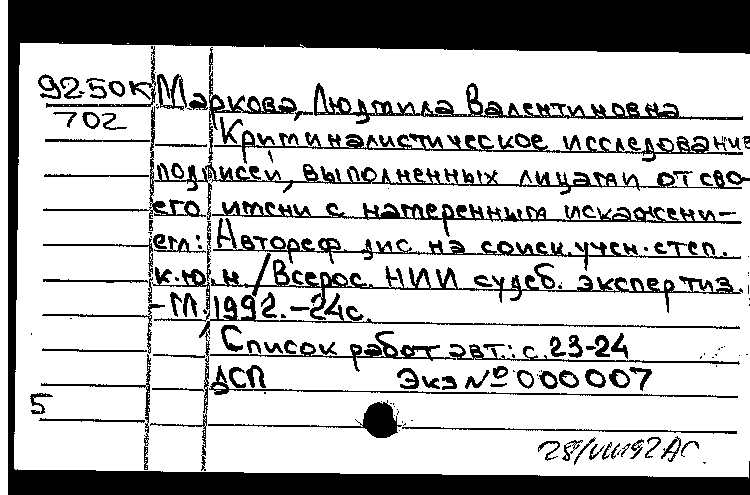 92-50К Маркова, Людмила Валентиновна
702
Криминалистическое исследование
подписей, выполненных лицами от сво-
его имени с намеренным искажени-
ем: Автореф. дис. на соиск. учен. степ.
к.ю.н. / Всерос. НИИ судеб. экспертиз.
-М., 1992. -24с.
Список работ авт.: с. 23-24
ДСП Экз № 000007
5
28/VIII92 АС